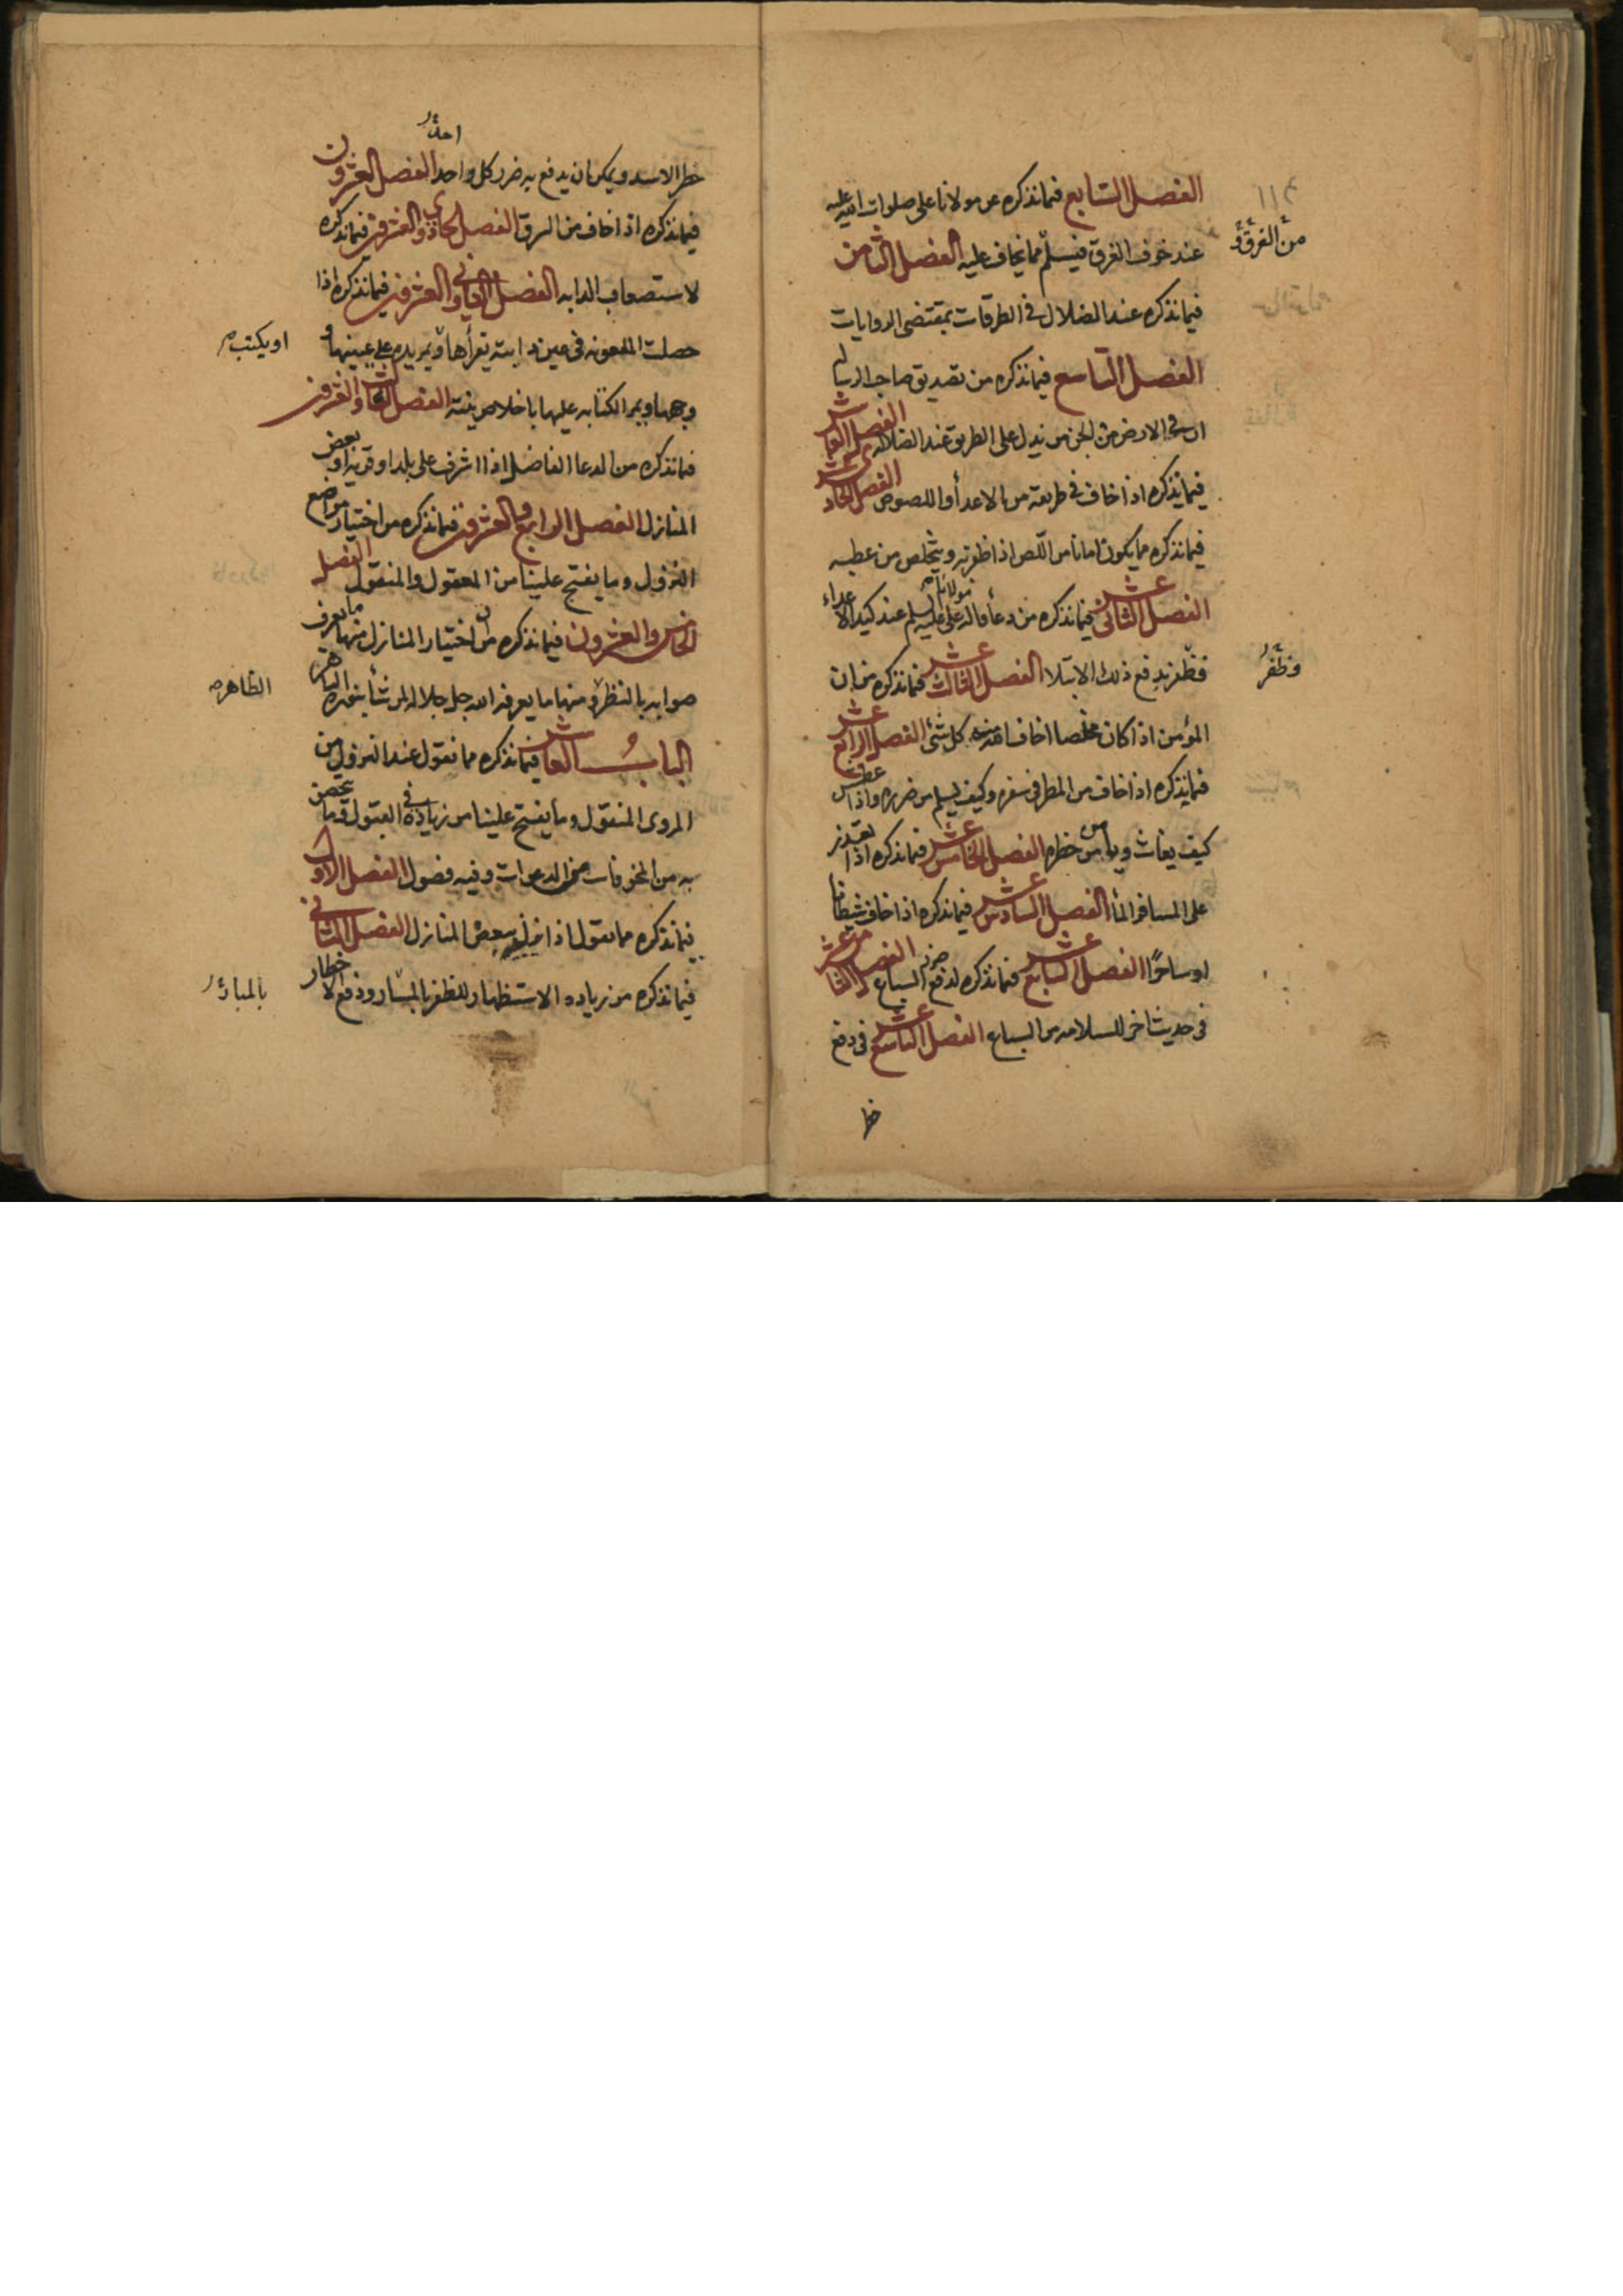 الفصل السابع فيما نذكره عن مولانا على صلوات الله عليه
من الغرق و
عند خوف الغرق فيسلم مما يخاف عليه الفصل الثامن
فيما نذكره عند الضلال فى الطرقات بمقتضى الروايات
الفصل التاسع فيما نذكره من تصديق صاحب الرساله
ان فى الارض من الجن من يدل على الطريق عند الضلاله الفصل العاشر
فيما نذكره اذا خاف فى طريقه من الاعدأ واللصوص الفصل الحادى عشر
فيما نذكره مما يكون امانا من اللص اذا ظفر به ويتخلص من عطبه
الفصل الثانى عشر فيما نذكره من دعأ قاله مولانا على عليه السلم عند كيد الاعداء
وظفر
فظفر بدفع ذلك الابتلا الفصل الثالث عشر فيما نذكره من ان
المؤمن اذا كان مخلصا اخاف الله منه كل شئ الفصل الرابع عشر
فيما نذكره اذا خاف من المطر فى سفره وكيف يسلم من ضرره واذا عطش
كيف يغاث ويامن من خطره الفصل الخامس عشر فيما نذكره اذا تعذر
على المسافر المأ الفصل السادس عشر فيما نذكره اذا خاف شيطانا
او ساحرًا الفصل السابع عشر فيما نذكره لدفع ضرر السباع الفصل الثامن عشر
فى حديث اخر للسلامه من السباع الفصل التاسع عشر فى دفع
خطر
خطر الاسد ويمكن ان يدفع به ضرر كل واحد الفصل العشرون
فيما نذكره اذا خاف من السرق الفصل الحادى والعشرون فيما نذكره
لاستصعاب الدابه الفصل الثانى والعشرون فيما نذكره اذا
حصلت الملعونه فى عين دابته يقرأها ويمر يده على عينها و
او يكتب
وجهها ويمر الكتابه عليها باخلاص نيته الفصل الثالث والعشرون
فيما نذكره من الدعا الفاضل اذا اشرف على بلد او قريه او بعض
المنازل الفصل الرابع والعشرون فيما نذكره من اختيار مواضع
النزول وما يفتح علينا من المعقول والمنقول الفصل
الخامس والعشرون فيما نذكره من ان اختيار المنازل منها ما يعرف
صوابه بالنظر و منها ما يعرفه الله جل جلاله لمن شأ بنوره الباهر
الظاهره
الباب العاشر فيما نذكره مما نقول عند النزول من
المروى المنقول وما يفتح علينا من زياده فى القبول وما يحصن
به من المخوفات من الدعوات وفيه فصول الفصل الاول
فيما نذكره مما نقول اذا نزل ببعض المنازل الفصل الثانى
فيما نذكره من زياده الاستظهار للظفر بالمسار ودفع الاخطار
بالمبار